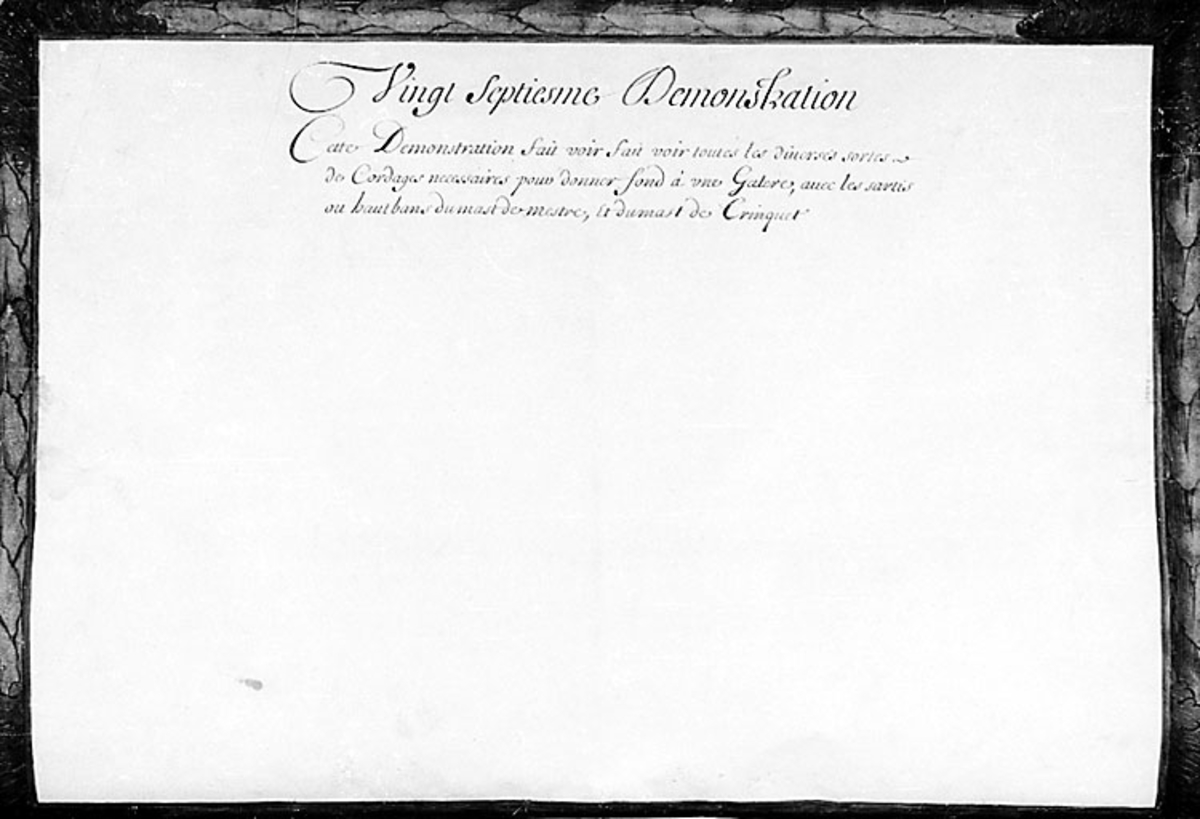 Vingt Septiesme Demonstration
Cette Demonstration fait voir fait voir toutes les diuerses sortes
de Cordages necessaires pour donner fond à vne Galere, auec les sartis
ou hautbans du mast de mestre, Et du mast de Trinquet